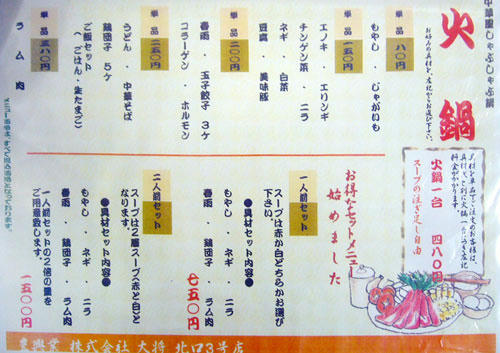 中華風しゃぶしゃぶ鍋
火鍋
お好みの具材を、左記からお選び下さい。
単品 八〇円
もやし ・ じゃがいも
単品 一五〇円
エノキ ・ エリンギ
チンゲン菜 ・ ニラ
ネギ ・ 白菜
豆腐 ・ 美味豚
単品 二〇〇円
春雨 ・ 玉子餃子 3ケ
コラーゲン ・ ホルモン
単品 二五〇円
うどん ・ 中華そば
鶏団子 5ケ
ご飯セット
( ごはん・生たまご )
単品 三八〇円
ラム肉
具材を単品でご注文のお客様は、
具材と別に火鍋一台につき左記
料金がかかります。
火鍋一台 四八〇円
スープの注ぎ足し自由
お得なセットメニュー
始めました
一人前セット
スープは赤か白どちらかお選び
下さい。
●具材セット内容●
もやし ・ ネギ ・ ニラ
春雨 ・ 鶏団子 ・ ラム肉
七五〇円
二人前セット
スープは2層スープ(赤と白)と
なります。
●具材セット内容●
もやし ・ ネギ ・ ニラ
春雨 ・ 鶏団子 ・ ラム肉
一人前セットの2倍の量を
ご用意致します。
一五〇〇円
メニュー価格は、すべて税込価格となっております。
興業 株式会社 大将 北口3号店